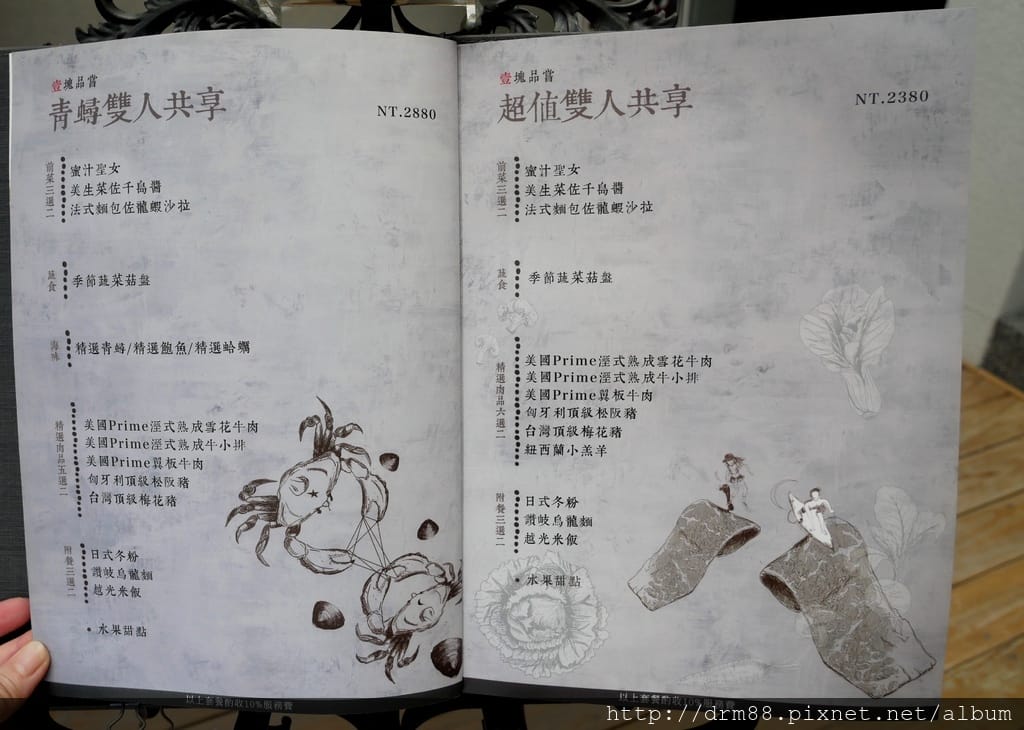 壹塊品嘗
青蟳雙人共享
NT.2880
前菜三選二
蜜汁聖女
美生菜佐千島醬
法式麵包佐龍蝦沙拉
蔬食
季節蔬菜菇盤
海味
精選青蟳/精選鮑魚/精選蛤蠣
精選肉品五選二
美國Prime溼式熟成雪花牛肉
美國Prime溼式熟成牛小排
美國Prime翼板牛肉
匈牙利頂級松阪豬
台灣頂級梅花豬
附餐三選二
日式冬粉
讚岐烏龍麵
越光米飯
• 水果甜點
以上套餐酌收10%服務費
壹塊品嘗
超值雙人共享
NT.2380
前菜三選二
蜜汁聖女
美生菜佐千島醬
法式麵包佐龍蝦沙拉
蔬食
季節蔬菜菇盤
精選肉品六選二
美國Prime溼式熟成雪花牛肉
美國Prime溼式熟成牛小排
美國Prime翼板牛肉
匈牙利頂級松阪豬
台灣頂級梅花豬
紐西蘭小羔羊
附餐三選二
日式冬粉
讚岐烏龍麵
越光米飯
• 水果甜點
以上套餐酌收10%服務費
http://drm88.pixnet.net/album